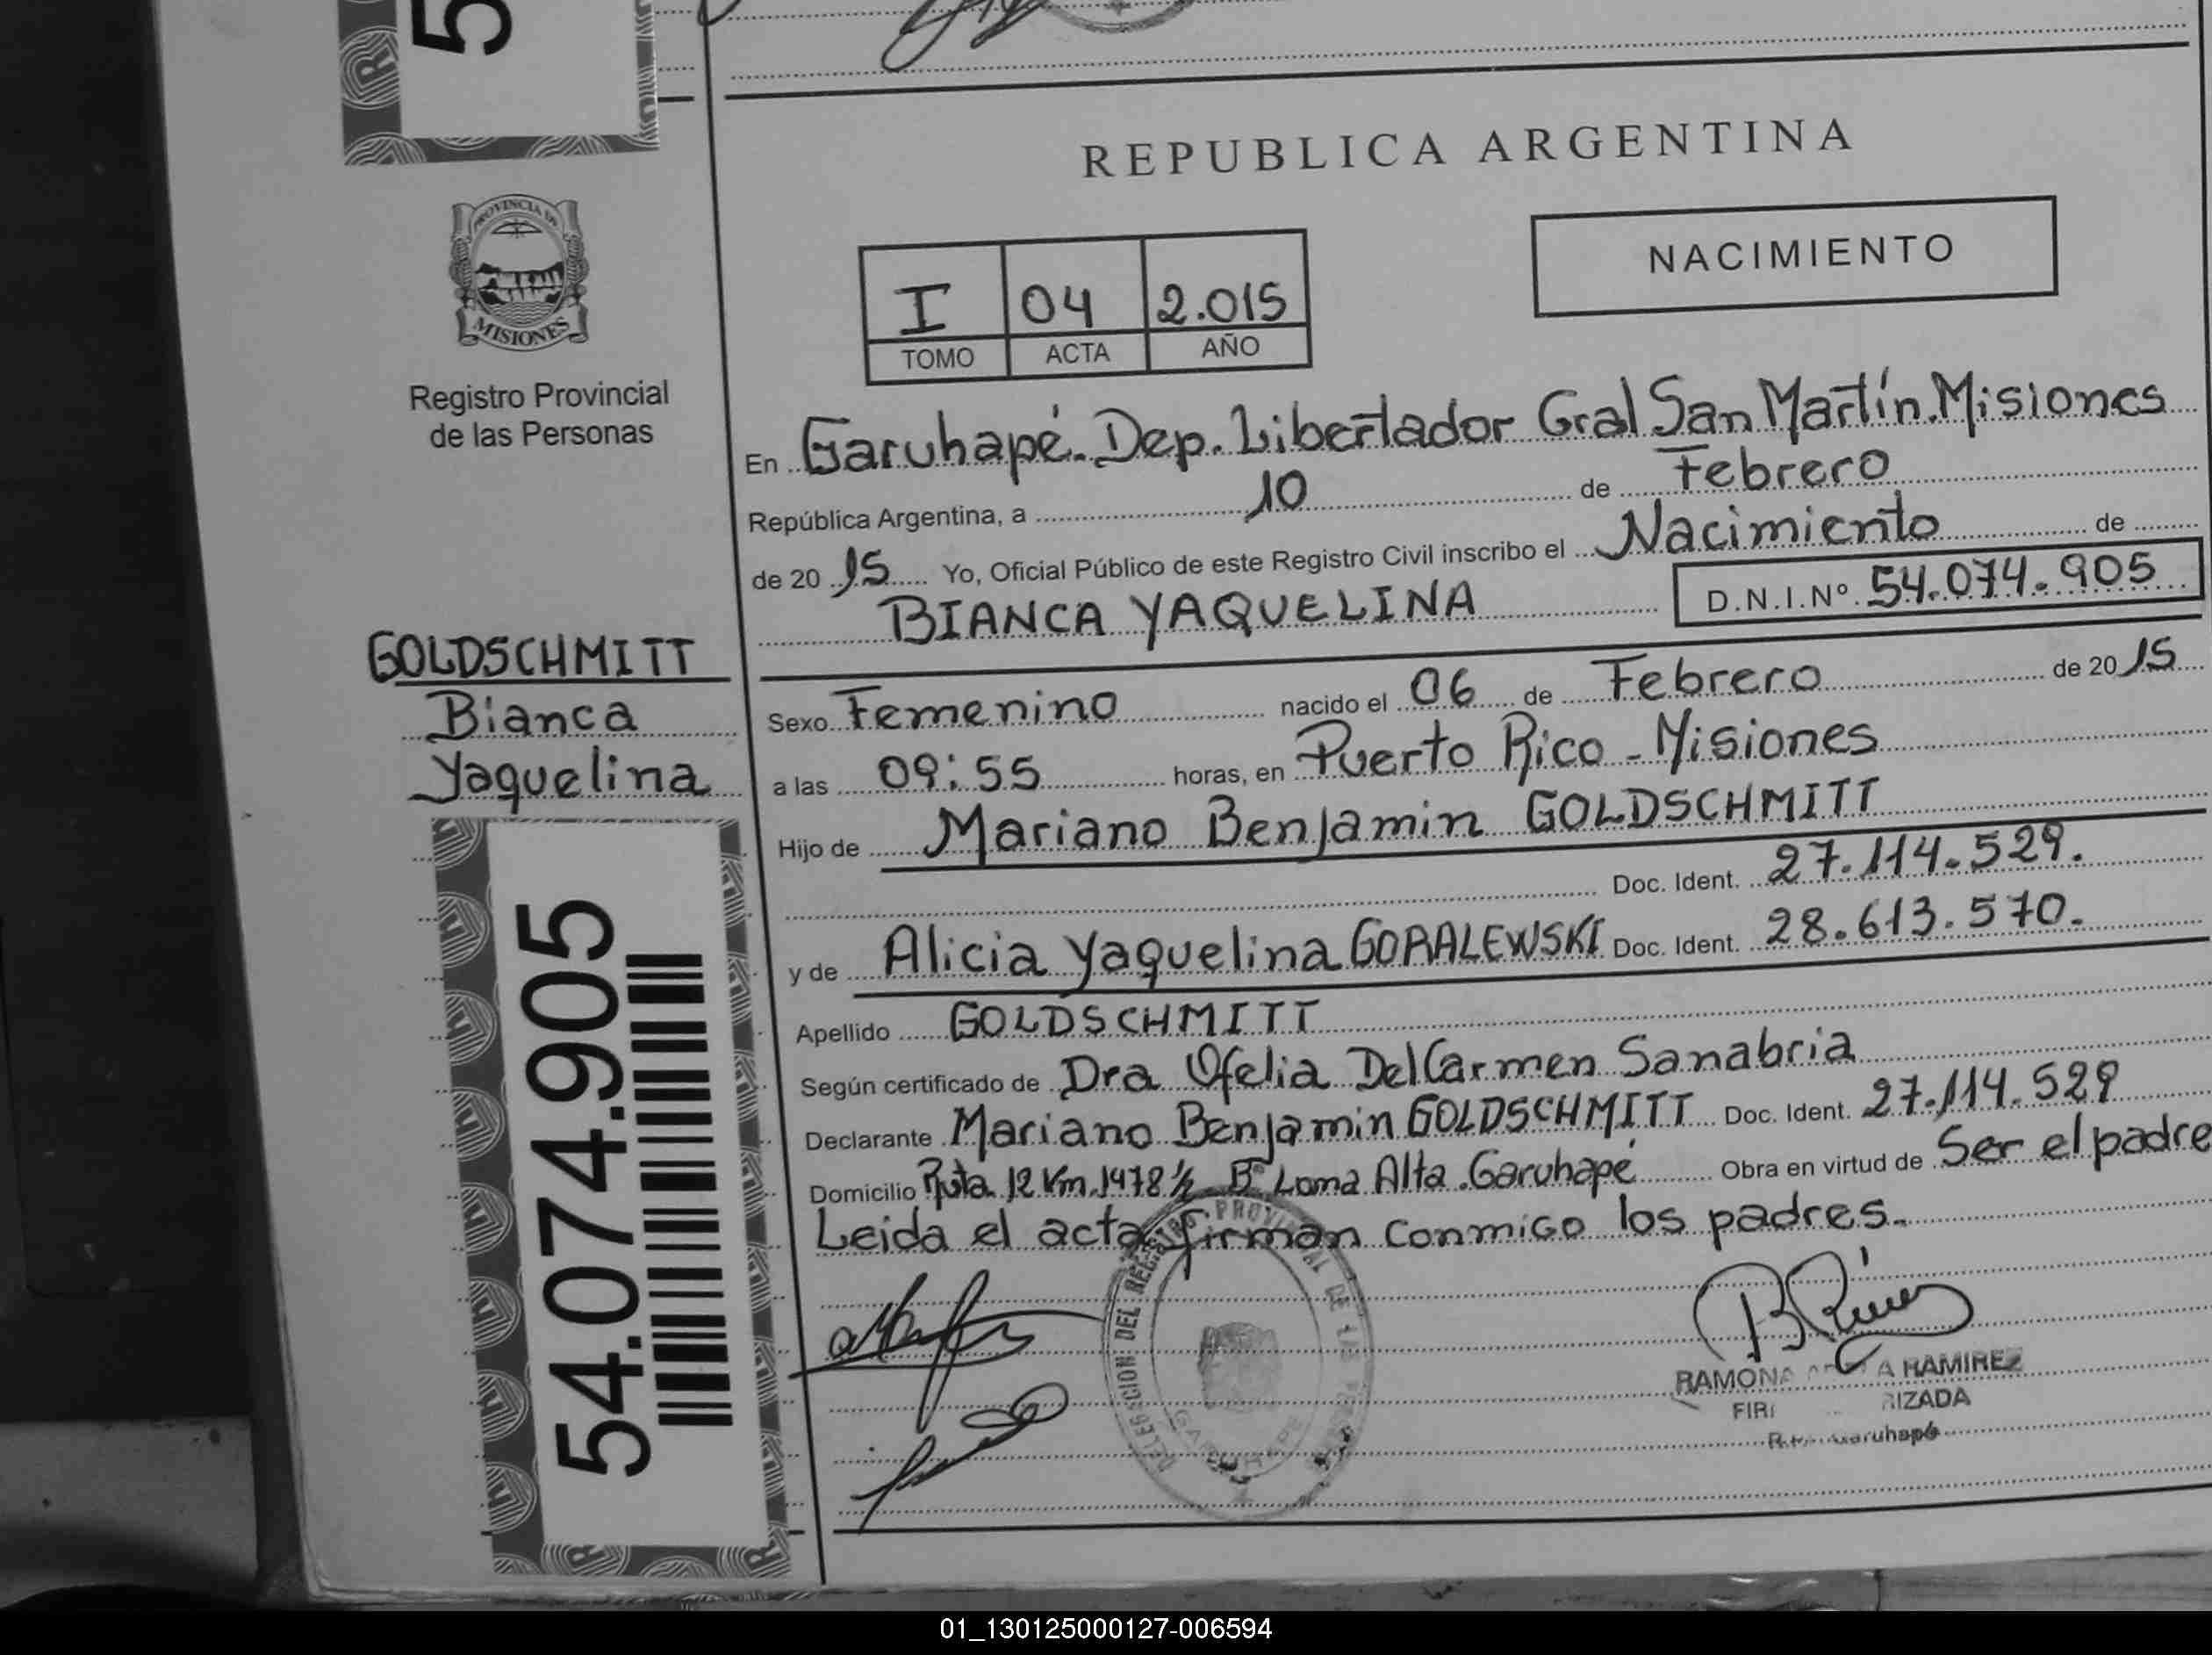 REPUBLICA ARGENTINA
NACIMIENTO
I 04 2.015
TOMO ACTA AÑO
PROVINCIA DE
MISIONES
Registro Provincial
de las Personas
GOLDSCHMITT
Bianca
Yaquelina
54.074.905
En Garuhapé. Dep. Libertador Gral San Martín. Misiones
República Argentina, a 10 de Febrero
de 20 15 Yo, Oficial Público de este Registro Civil inscribo el Nacimiento de
BIANCA YAQUELINA D.N.I.Nº 54.074.905
Sexo Femenino nacido el 06 de Febrero de 20 15
a las 09:55 horas, en Puerto Rico - Misiones
Hijo de Mariano Benjamin GOLDSCHMITT
Doc. Ident. 27.114.529.
y de Alicia Yaquelina GORALEWSKI Doc. Ident. 28.613.570.
Apellido GOLDSCHMITT
Según certificado de Dra Ofelia Del Carmen Sanabria
Declarante Mariano Benjamin GOLDSCHMITT Doc. Ident. 27.114.529
Domicilio Ruta 12 Km 1478 ½ Bº Loma Alta. Garuhapé Obra en virtud de Ser el padre
Leida el acta firman conmigo los padres.
DEL REGISTRO PROVINCIAL DE LAS
GARUHAPE
RAMONA RAMIREZ
Garuhapé
01_130125000127-006594